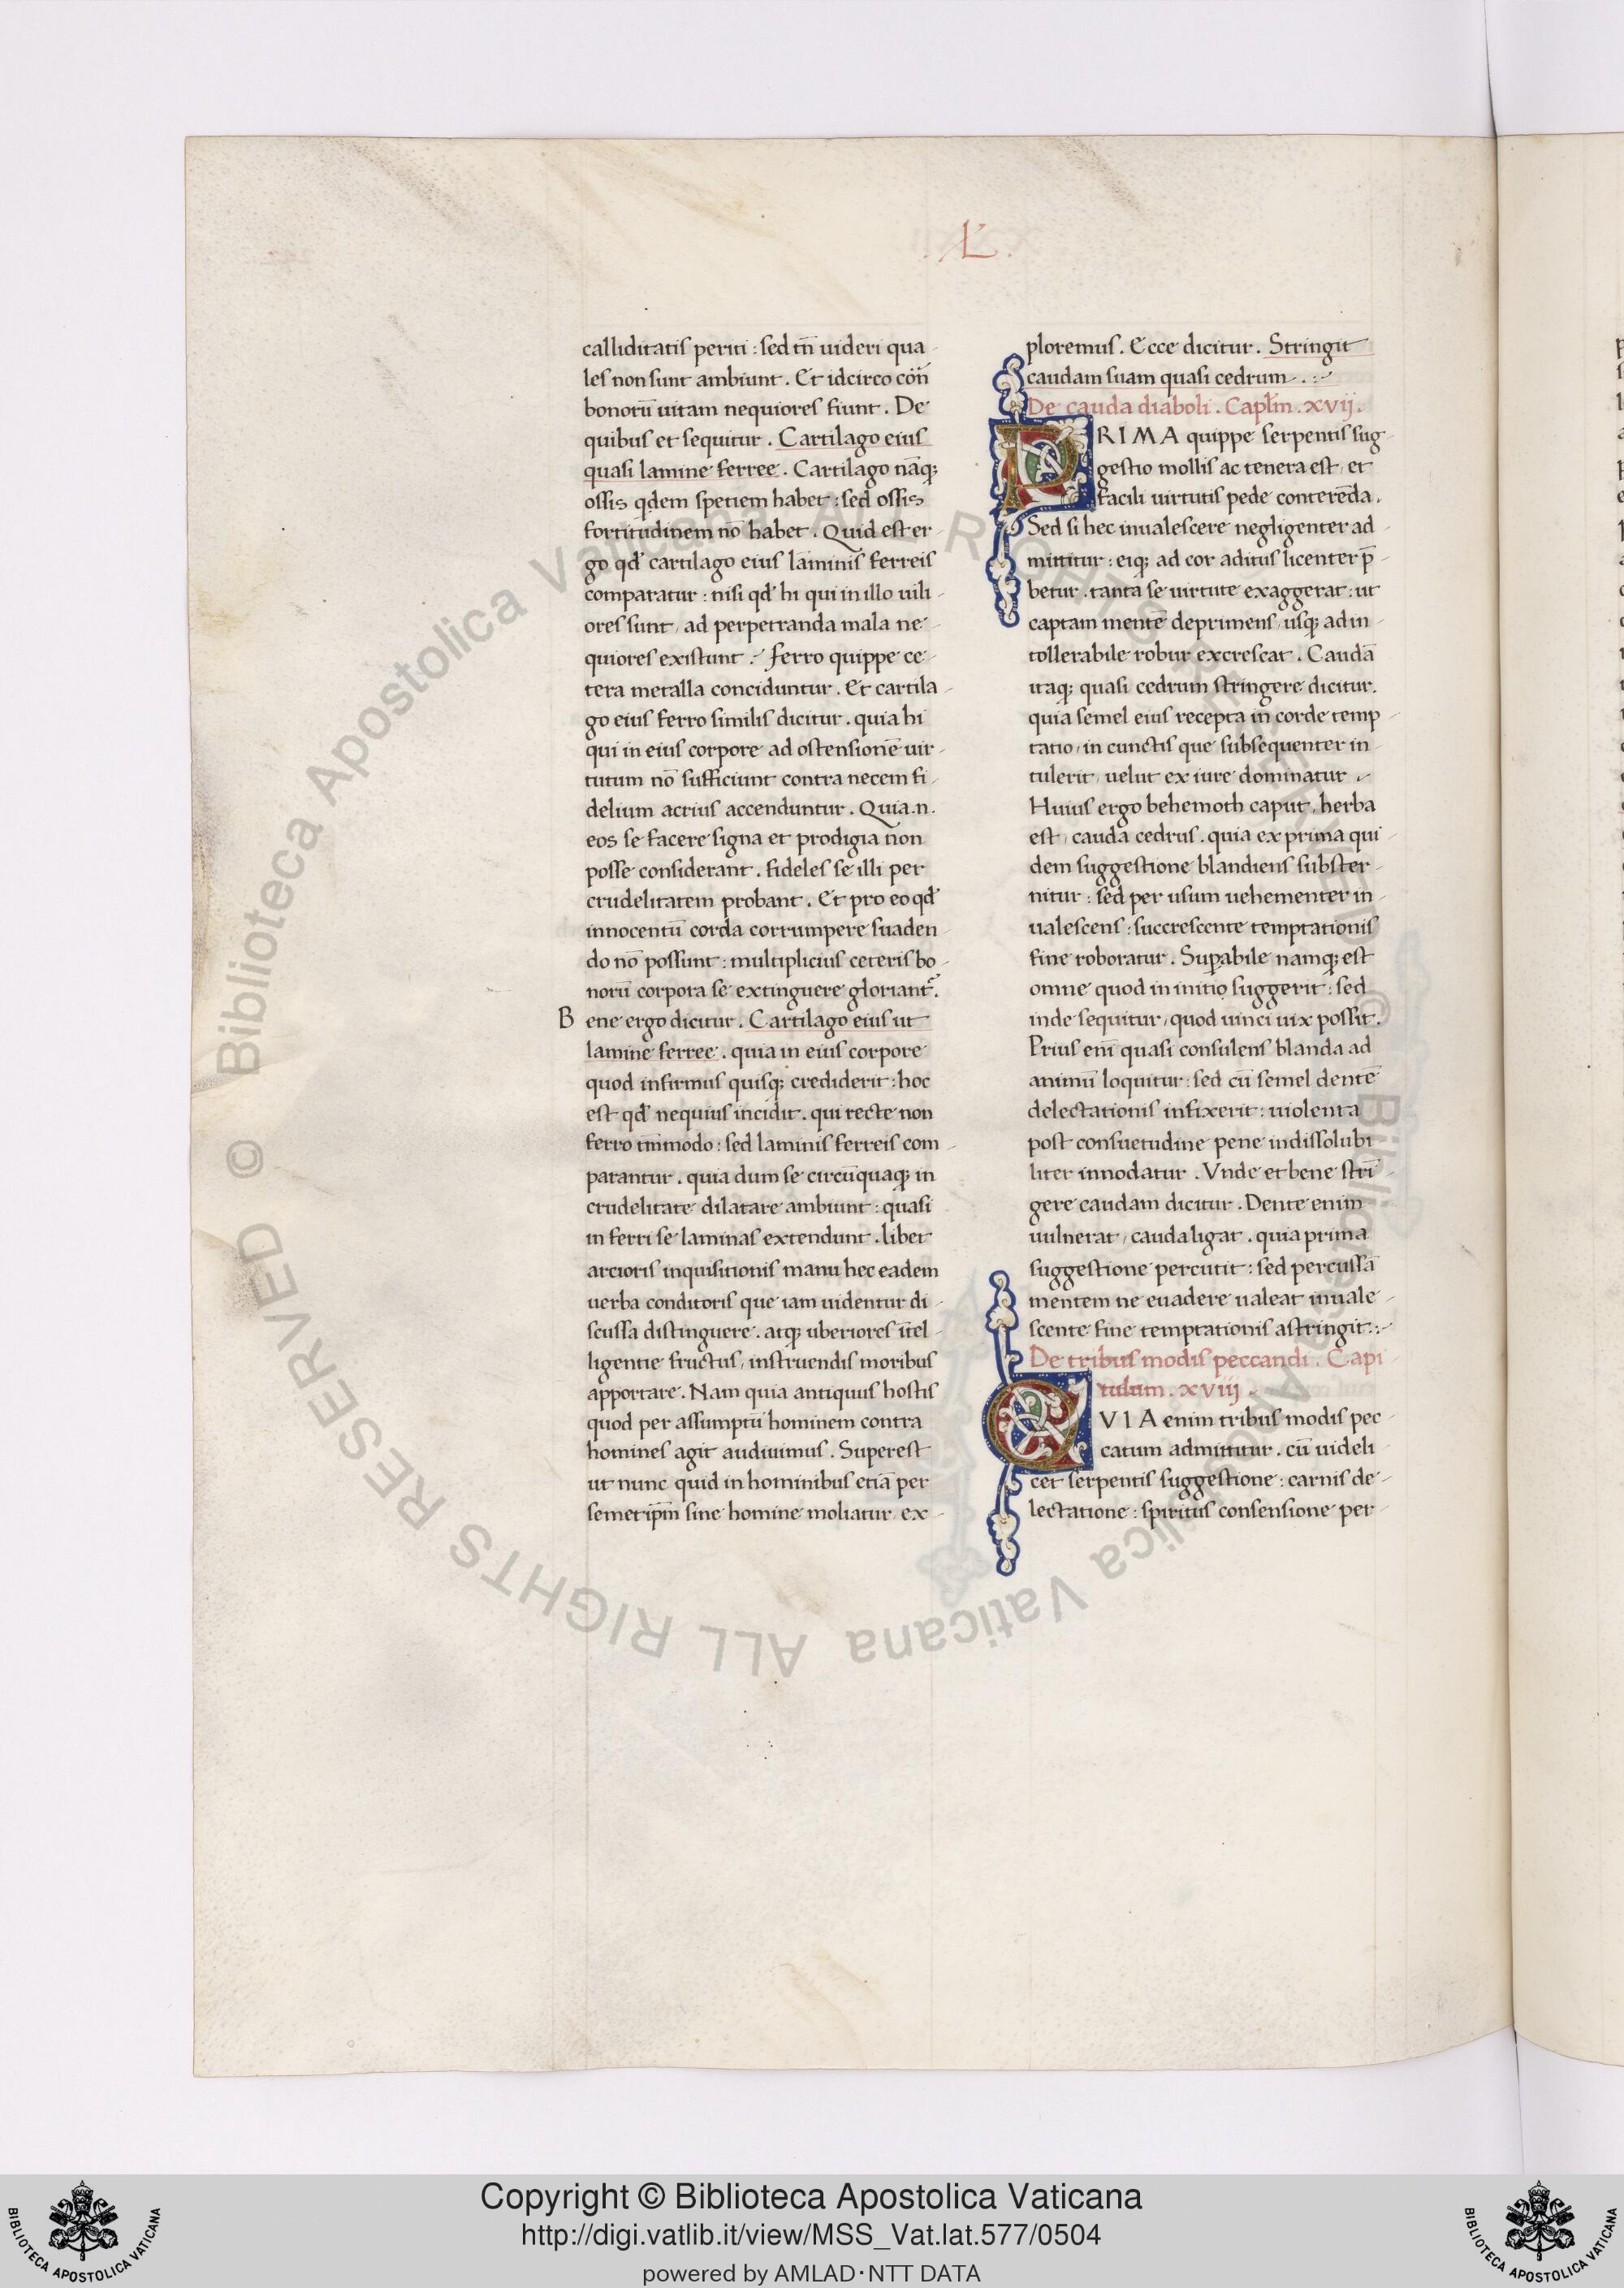 .L.
calliditatis periti : sed tn̄ uideri qua
les non sunt ambiunt . Et idcirco cōn̄
bonorū uitam nequiores fiunt . De
quibus et sequitur . Cartilago eius
quasi lamine ferree . Cartilago nāq;
ossis qdem spetiem habet : sed ossis
fortitudinem nō habet . Quid est er
go qd̄ cartilago eius laminis ferreis
comparatur : nisi qd̄ hi qui in illo uili
ores sunt , ad perpetranda mala ne
quiores existunt . Ferro quippe ce
tera metalla conciduntur . Et cartila
go eius ferro similis dicitur . quia hi
qui in eius corpore ad ostensionē uir
tutum nō sufficiunt contra necem fi
delium acrius accenduntur . Quia .n.
eos se facere signa et prodigia non
posse considerant . fideles se illi per
crudelitatem probant . Et pro eo qd̄
innocentū corda corrumpere suaden
do nō possunt : multiplicius ceteris bo
norū corpora se extinguere gloriant̄.
Bene ergo dicitur . Cartilago eius ut
lamine ferree . quia in eius corpore
quod infirmus quisq; crediderit : hoc
est qd̄ nequius incidit . qui recte non
ferro tm̄modo : sed laminis ferreis com
parantur . quia dum se circūquaq; in
crudelitate dilatare ambiunt : quasi
in ferri se laminas extendunt . libet
arcioris inquisitionis manu hec eadem
uerba conditoris que iam uidentur di
scussa distinguere . atq; uberiores ītel
ligentie fructus , instruendis moribus
apportare . Nam quia antiquus hostis
quod per assumptū hominem contra
homines agit audiuimus . Superest
ut nunc quid in hominibus etiā per
semet ip̄m sine homine moliatur , ex
ploremus . Ecce dicitur . Stringit
caudam suam quasi cedrum .
De cauda diaboli . Capl̄m . xvij .
PRIMA quippe serpentis sug
gestio mollis ac tenera est , et
facili uirtutis pede conterēda .
Sed si hec inualescere negligenter ad
mittitur : eiq; ad cor aditus licenter p̄
betur . tanta se uirtute exaggerat : ut
captam mentē deprimens , usq; ad in
tollerabile robur excrescat . Caudā
itaq; quasi cedrum stringere dicitur .
quia semel eius recepta in corde temp
tatio , in cunctis que subsequenter in
tulerit , uelut ex iure dominatur .
Huius ergo behemoth caput , herba
est , cauda cedrus . quia ex prima qui
dem suggestione blandiens subster
nitur : sed per usum uehementer in
ualescens : succrescente temptationis
fine roboratur . Supabile namq; est
omne quod in initio suggerit : sed
inde sequitur , quod uinci uix possit .
Prius enī quasi consulens blanda ad
animū loquitur : sed cū semel dentē
delectationis infixerit : uiolenta
post consuetudine pene indissolubi
liter innodatur . Vnde et bene strī
gere caudam dicitur . Dente enim
uulnerat , cauda ligat . quia prima
suggestione percutit : sed percussā
mentem ne euadere ualeat inuale
scente fine temptationis astringit :
De tribus modis peccandi . Capi
tulum . xviij .
QVIA enim tribus modis pec
catum admittitur . cū uideli
cet serpentis suggestione : carnis de
lectatione : spiritus consensione per
© Biblioteca Apostolica Vaticana ALL RIGHTS RESERVED © Biblioteca Apostolica Vaticana ALL RIGHTS RESERVED
Copyright © Biblioteca Apostolica Vaticana
http://digi.vatlib.it/view/MSS_Vat.lat.577/0504
powered by AMLAD·NTT DATA
BIBLIOTECA APOSTOLICA VATICANA
BIBLIOTECA APOSTOLICA VATICANA